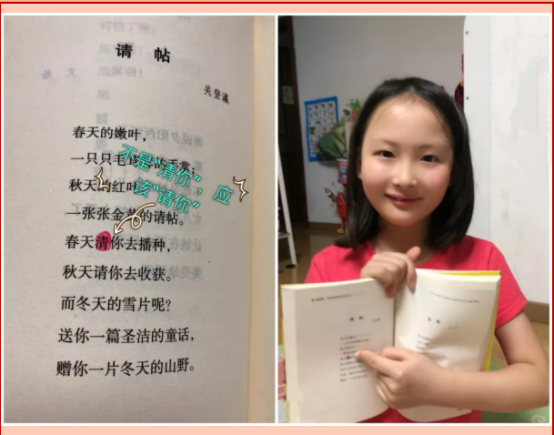 请 帖
关登瀛
春天的嫩叶，
一只只毛的手掌；
秋天的红叶
一张张金的请帖。
春天清你去播种，
秋天请你去收获。
而冬天的雪片呢？
送你一篇圣洁的童话，
赠你一片冬天的山野。
不是“清你”，应
该“请你”